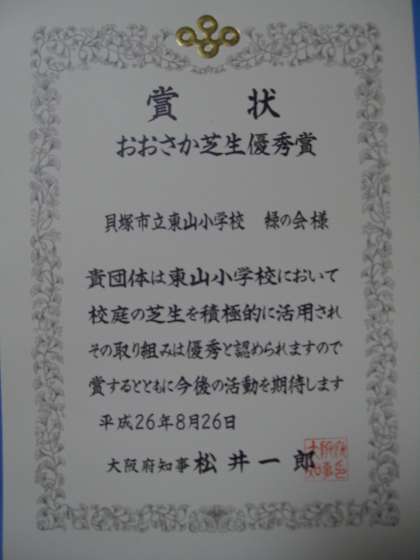 賞状
おおさか芝生優秀賞
貝塚市立東山小学校 緑の会様
貴団体は東山小学校において
校庭の芝生を積極的に活用され
その取り組みは優秀と認められますので
賞するとともに今後の活動を期待します
平成26年8月26日
大阪府知事 松井一郎